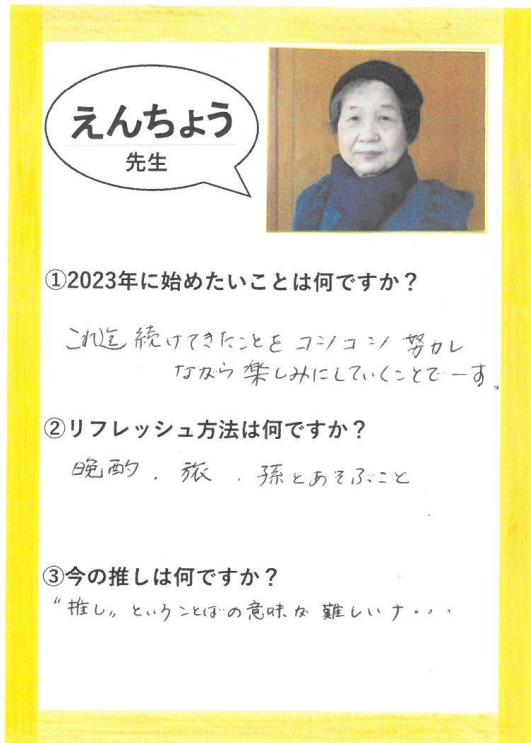 えんちょう
先生
①2023年に始めたいことは何ですか？
これ迄続けてきたことをコツコツ努力し
ながら楽しみにしていくことでーす。
②リフレッシュ方法は何ですか？
晩酌．旅．孫とあそぶこと
③今の推しは何ですか？
〝推し〟ということばの意味が難しいナ・・・